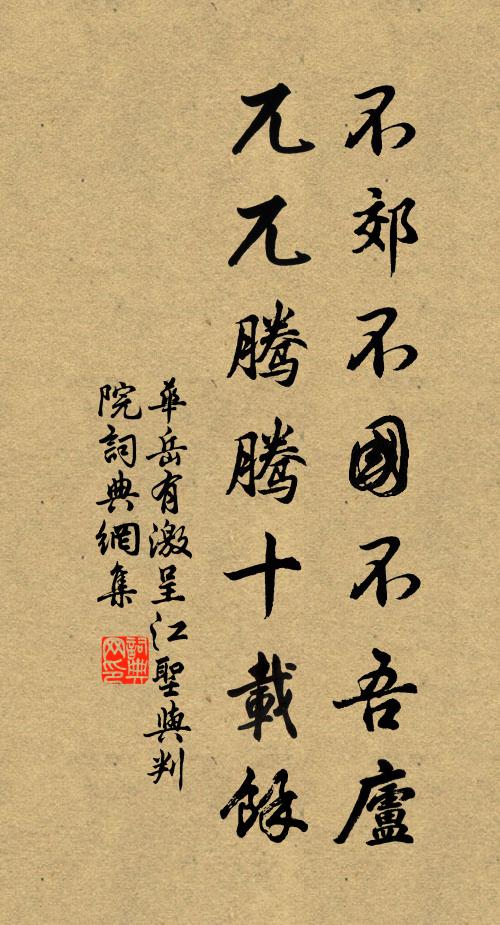 不郊不國不吾廬
兀兀騰騰十載餘
華岳有激呈江聖與判
院詞典網集
詞典
网印